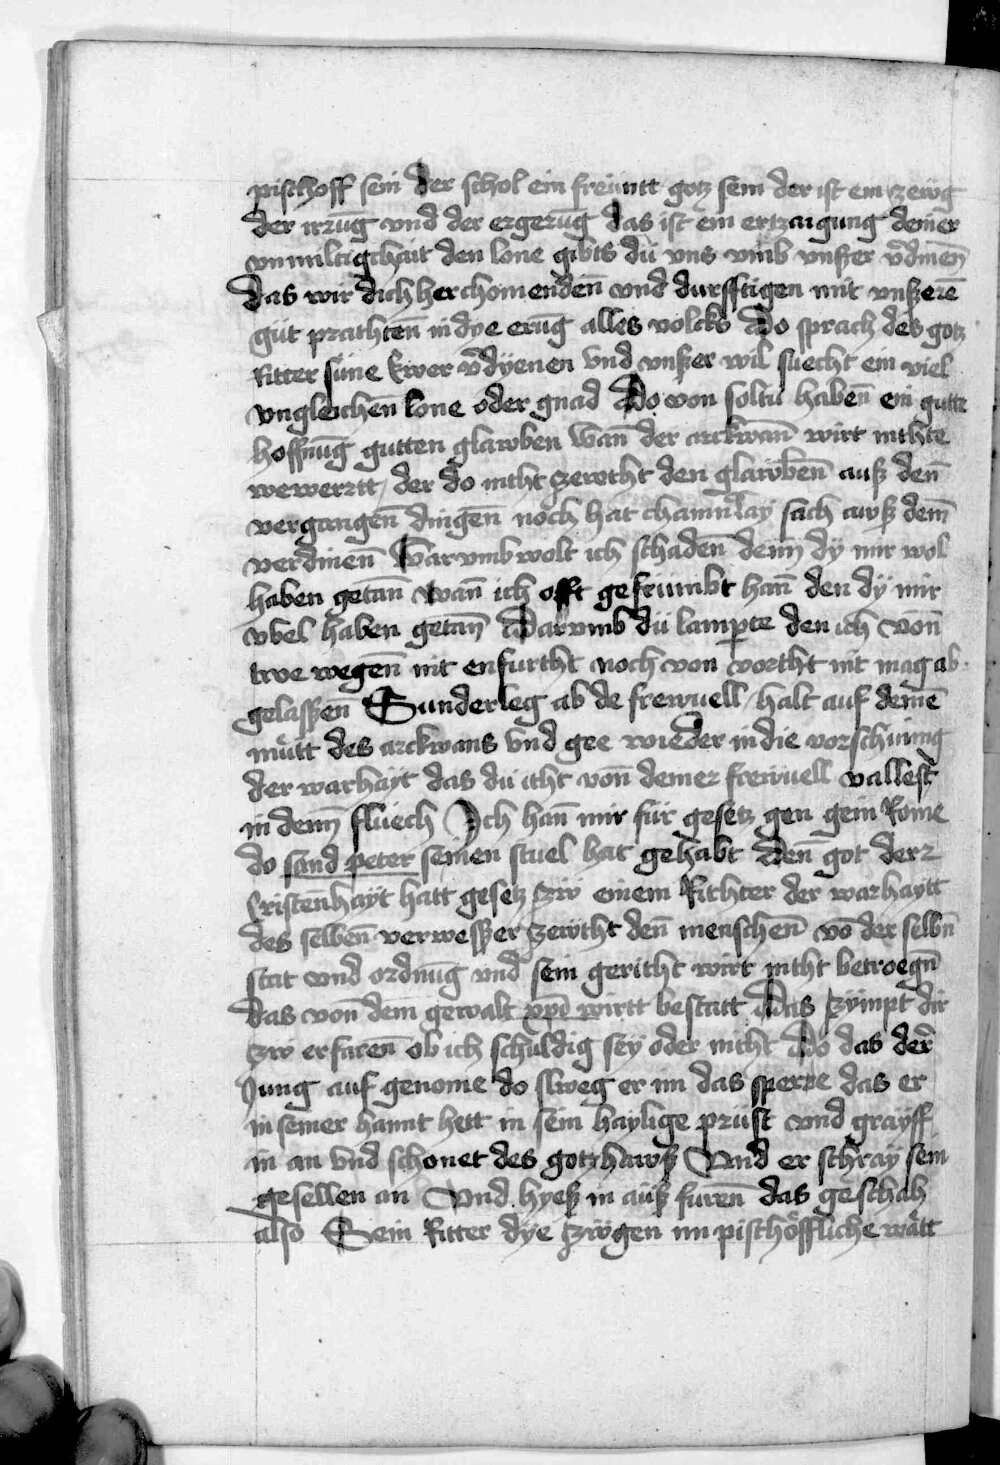 pischoff sein der schol ein freuntt gotz sein der ist ein zewg
der irrūg vnd der ergerūg das ist ein ertzaigung deiner
vnmiltigchait den lone gibts dü vns vmb vnßer v̄dinen
das wir dich her chomenden̄ vnd durfftigen mit vnßerē
güt prachten̄ in dye erūg alles volcks Do sprach des gotz
Ritter süne Ewer v̄dyenen vnd vnßer wil suecht ein viel
vngleichen̄ lone oder gnad Do von soltu haben̄ ein gutte
hoffnūg gutten glawben wan̄ der arckwan̄ wirt nichte
bewerrtt / der do nicht zewcht den glawben̄ auß den̄
vergangen̄ dingen̄ noch hat chainrlay sach awß dem̄
verdinen̄ Warvmb wolt ich schaden̄ denn̄ dy mir wol
haben getan̄ wan̄ ich offt gefrumbt han̄ den dÿ mir
vbel haben getan̄ Darvmb dü lamperte den ich von̄
trwe wegen̄ nit enfurcht noch von vorcht nit mag ab
gelassen̄ Sunder leg ab de frewuell / halt auf deinē
muett des arckwans vnd gee wieder in die vorschinnig
der warhayt das du icht von̄ deiner frewuell vallest
in denn̄ fluech Ich han̄ mir für gesetz gen gein Rome
do sand peter seinen stuel hat gehabt Den̄ got derr
Cristen̄hayt hatt gesetz zw einem Richter der warhaytt
des selben̄ verwesser zewcht den̄ menschen̄ vō der selbn̄
stat vnd ordnūg vnd sein gericht wirt nicht betroegn̄
das von̄ dem gewalt xp̄i wirtt bestatt Das zÿmpt dir
zw erfaren̄ ob ich schuldig sey oder nicht Do das der
Jung auf genome do slweg er im das sperre das er
in seiner hannt hett in sein haylige prüst vnd grayff
in an vnd schonet des gotzhawß Vnd er schray sein
gesellen an Vnd hyeß in auß furen̄ das geschah
also Sein Ritter dye zwgen im pischöffliche wātt